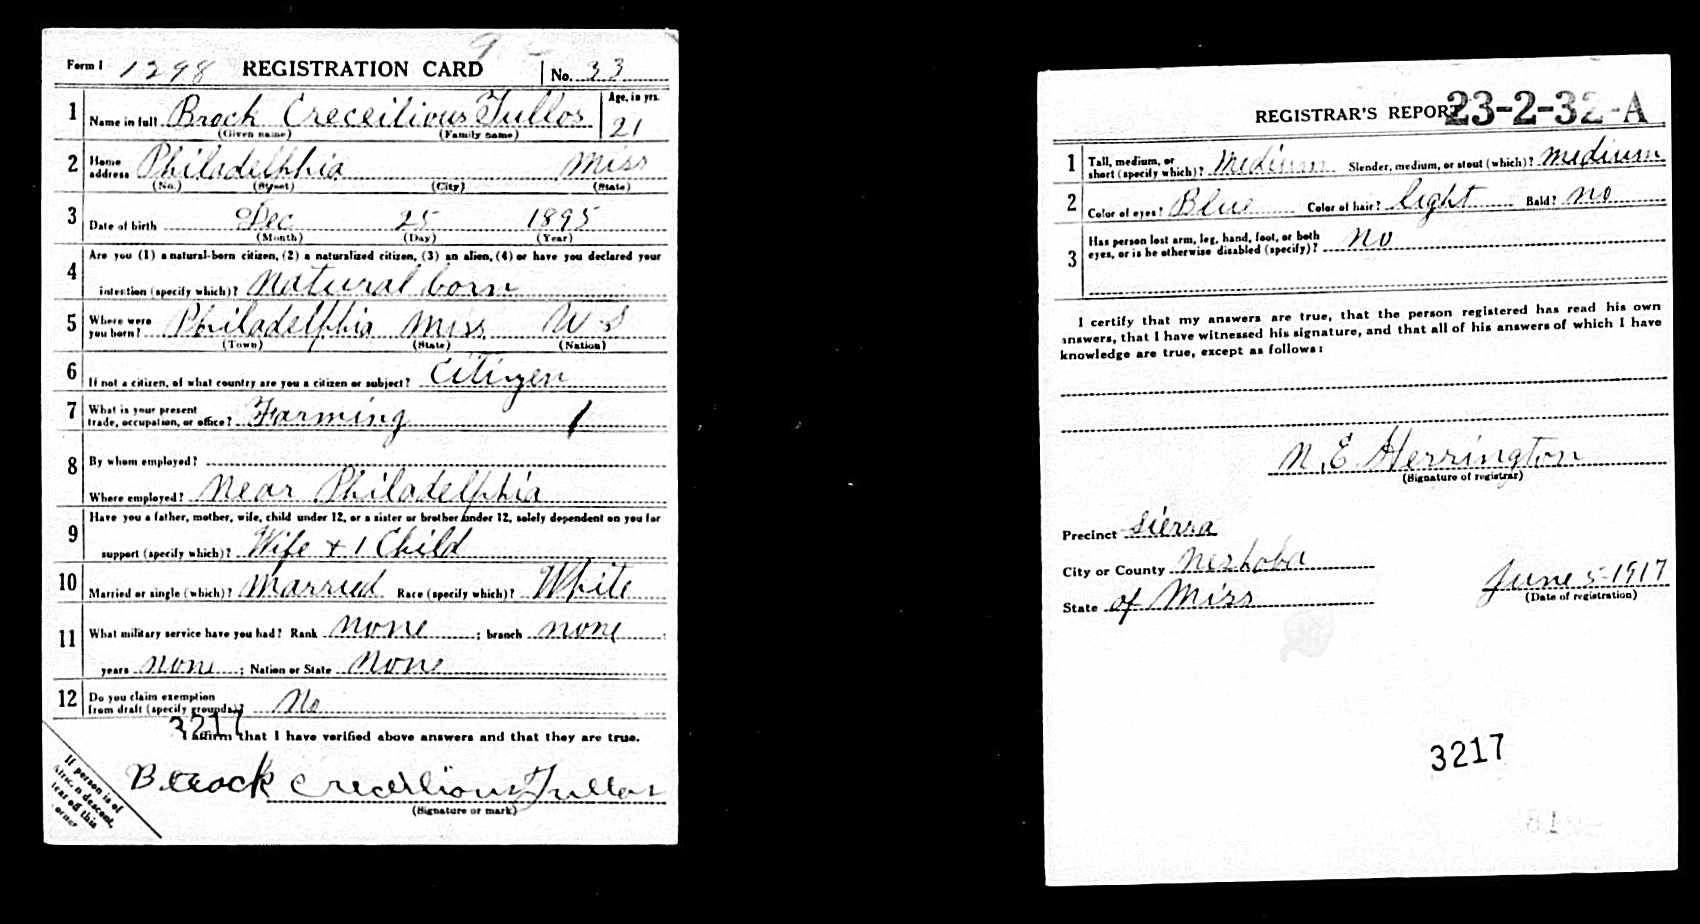 Form 1 1298 REGISTRATION CARD No. 33
1 Name in full Brock Creceitious Tullos Age, in yrs.
(Given name) (Family name) 21
2 Home address Philadelphia Miss
(No.) (Street) (City) (State)
3 Date of birth Dec 25 1895
(Month) (Day) (Year)
4 Are you (1) a natural-born citizen, (2) a naturalized citizen, (3) an alien, (4) or have you declared your
intention (specify which)? Natural born
5 Where were you born? Philadelphia Miss U S
(Town) (State) (Nation)
6 If not a citizen, of what country are you a citizen or subject? Citizen
7 What is your present trade, occupation, or office? Farming 1
8 By whom employed?
Where employed? Near Philadelphia
9 Have you a father, mother, wife, child under 12, or a sister or brother under 12, solely dependent on you for
support (specify which)? Wife + 1 Child
10 Married or single (which)? Married Race (specify which)? White
11 What military service have you had? Rank none ; branch none ;
years none ; Nation or State None
12 Do you claim exemption from draft (specify grounds)? No
3217
I affirm that I have verified above answers and that they are true.
Brock Creceitious Tullos
(Signature or mark)
If person is of
African descent,
tear off this
corner
REGISTRAR'S REPORT 23-2-32-A
1 Tall, medium, or short (specify which)? Medium Slender, medium, or stout (which)? medium
2 Color of eyes? Blue Color of hair? light Bald? no
3 Has person lost arm, leg, hand, foot, or both eyes, or is he otherwise disabled (specify)? No
I certify that my answers are true, that the person registered has read his own
answers, that I have witnessed his signature, and that all of his answers of which I have
knowledge are true, except as follows:
N. E. Herrington
(Signature of registrar)
Precinct Sierra
City or County Neshoba
State of Miss
June 5-1917
(Date of registration)
3217